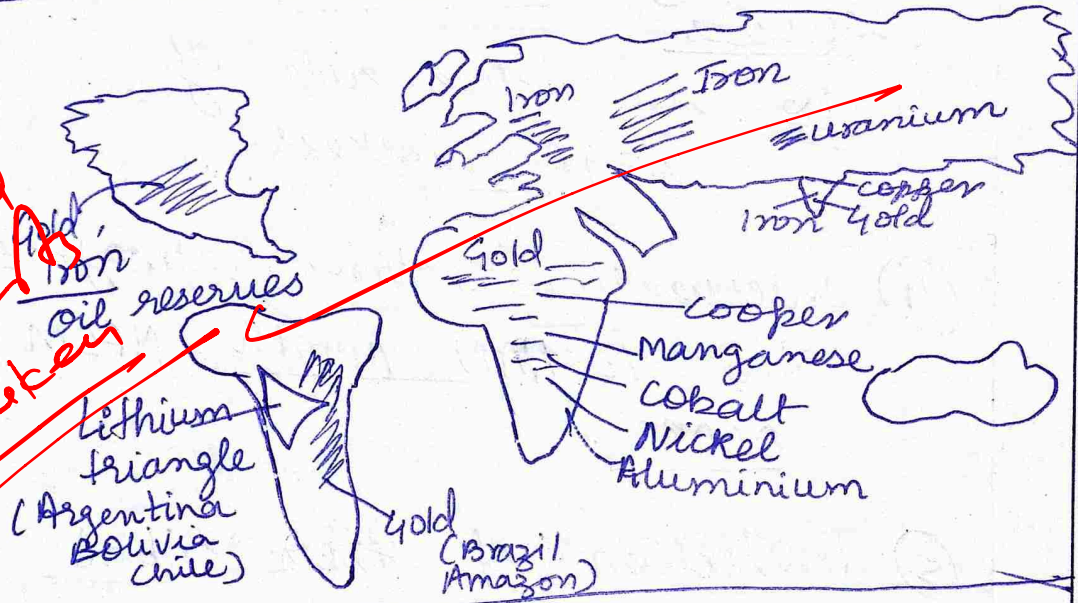 Iron
Iron
uranium
copper
Iron Gold
Gold,
Iron
oil reserves
Gold
cooper
Manganese
Cobalt
Nickel
Aluminium
Lithium
triangle
(Argentina
Bolivia
Chile)
Gold
(Brazil
Amazon)